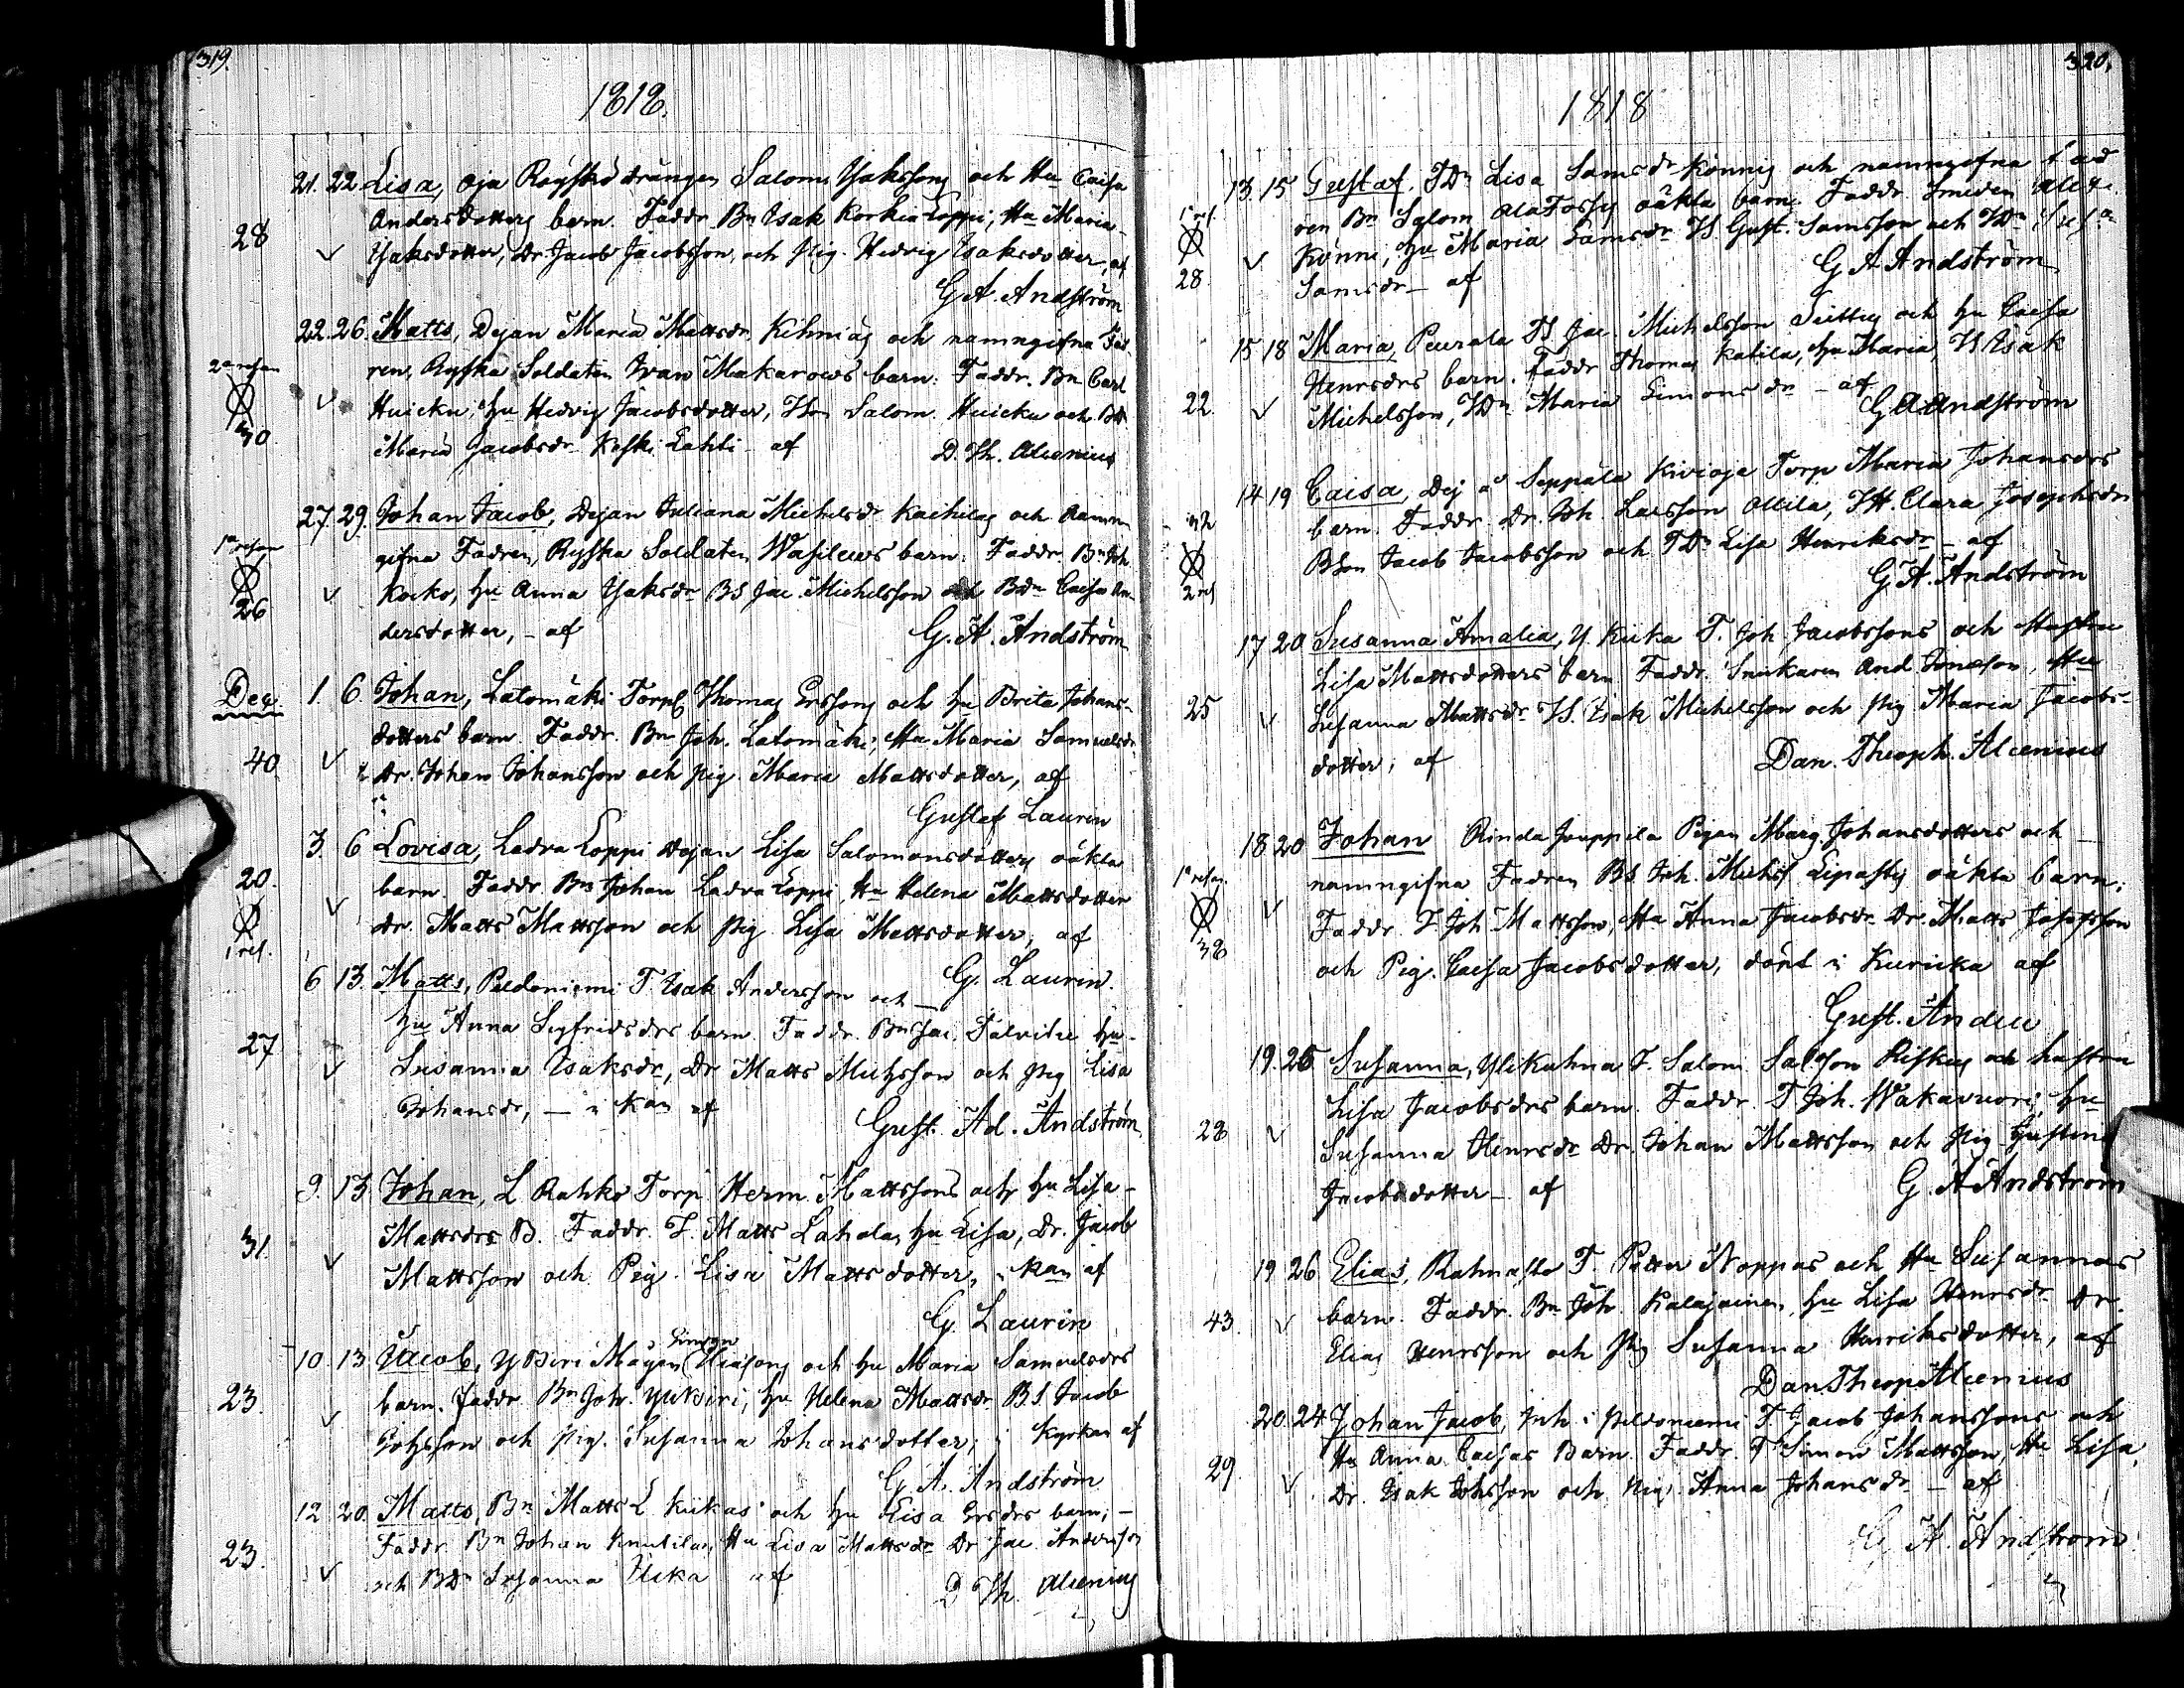 319.
1818.
21. 22 Lisa, Oja Röyskö drängen Salom. Isaksons och Hu Caisa
Andersdotters barn. Faddr. Bn Isak Korkia Loppi, Hu Maria
28
Isaksdotter, Dr. Jacob Jacobsson, och Pig. Hedvig Isaksdotter, af
G. A. Andström
22. 26. Matts, Dejan Maria Mattsdr. och namngifna Fad
2a resan
ren, Ryska Soldaten Ivan Makarows barn. Faddr. Bn Carl
Huicku, Hu Hedvig Jacobsdotter, Salom. Huicku och
30
Maria Jacobsdr. Keski Lahti af D. Th. Alcenius
27. 29. Johan Jacob, Dejan Juliana Michelsdr. och namn
1a resan
gifna Fadren, Ryska Soldaten Wasilews barn. Faddr. Bn Joh.
Kocko, Hu Anna Isaksdr. BS Jac. Michelsson och BDn Caisa An
26
dersdotter, - af G. A. Andström
Dec. 1. 6. Johan, Latomäki Torp. Thomas Erssons och Hu Brita Johans-
dotters barn. Faddr. Bn Joh. Latomäki, Hu Maria Samuelsdr.
40
Dr. Johan Johansson och Pig. Maria Mattsdotter, af
Gustaf Laurin
3. 6 Lovisa, Ladva Loppi Dejan Lisa Salomonsdotters oäkta
20.
barn. Faddr. Bn Johan Ladva Loppi, Hu Helena Mattsdotter
Dr. Matts Mattsson och Pig. Lisa Mattsdotter, af
1 res.
G. Laurin.
6 13. Matts, Peldoniemi T. Isak Andersson och
Hu Anna Sigfridsdrs barn. Faddr. Bn Jac. Salvitu Hu
27
Susanna Isaksdr, Dr Matts Michsson och Pig Lisa
Johansdr, - i Kan af
Gust. Ad. Andström
9. 13 Johan, L. Rahko Torp. Herm. Mattssons och Hu Lisa
Mattsdrs B. Faddr. T. Matts Lahala, Hu Lisa, Dr. Jacob
31.
Mattsson och Pig. Lisa Mattsdotter, i Kan af
G. Laurin
Simon
10. 13 Jacob, Mågen Eliassons och Hu Maria Samuelsdrs
23.
barn. Faddr. Bn Joh. Hu Helena Mattsdr. B.S. Jacob
Johsson och Pig. Susanna Johansdotter, i Kyrkan af
G. A. Andström
12 20. Matts, Bn Matts L. Kiikas och Hu Lisa Ersdrs barn;
Faddr. Bn Johan Knutila, Hu Lisa Mattsdr. Dr. Jac. Andersson
23.
och BDn Susanna af D. Th. Alcenius
320.
1818
13. 15 Gustaf. TDn Lisa Samsdr. Könnis och namngifna fad
1 res.
ren Bn Salom. AlaFossis oäkta barn. Faddr. Smeden
Könni, Hu Maria Samsdr. Gust. Samsson och
28.
Samsdr - af G A Andström
15 18 Maria, Peurala TS. Jac. Michelsson och Hu Caisa
Henrsdrs barn. Faddr Thomas Katila, Hu Maria, Isak
22.
Michelsson, Maria Simonsdr - af
G A Andström
14 19 Caisa, Dej å Seppälä Kivioja Torp Maria Johansdrs
32
barn. Faddr. Dr. Joh. Larsson Ollila, Clara Josephsdr
BSon Jacob Jacobsson och TDn Lisa Henriksdr - af
2 res
G. A. Andström
17 20 Susanna Amalia, Y. Kiika T. Joh. Jacobssons och Hustru
Lisa Mattsdotters barn Faddr. Snikaren And. Hu
25
Susanna Mattsdr. Isak Michelsson och Pig Maria Jacobs-
dotter, af Dan. Theoph. Alcenius
18 20 Johan Rinda Jouppila Pigan Marg. Johansdotters och
1a resan.
namngifna Fadren BS Joh. Michss oäkta barn.
Faddr. T Joh Mattsson, Hu Anna Jacobsdr. Dr. Matts Josephsson
38
och Pig. Caisa Jacobsdotter, döpt i Kuricka af
Gust. Ande
19. 25 Susanna, Ylikahma T. Salom. Salsson och hustru
Lisa Jacobsdrs barn. Faddr. T Joh. Wakavuori, Hu
28
Susanna Henrsdr. Dr. Johan Mattsson och Pig Justina
Jacobsdotter - af G. A Andström
19 26 Elias, T. Petter Noppas och Hu Susannas
43.
barn. Faddr. Bn Joh. Kalajainen, Hu Lisa Henrsdr. Dr.
Elias Henrsson och Pig Susanna Henriksdotter, af
Dan. Theop. Alcenius
20. 24 Johan Jacob, Inh. i Peldoniemi T. Jacob Johanssons och
Hu Anna Caisas Barn. Faddr. T Simon Mattsson, Hu Lisa,
29.
Dr. Isak Johsson och Pig. Anna Johansdr - af
G. A. Andström